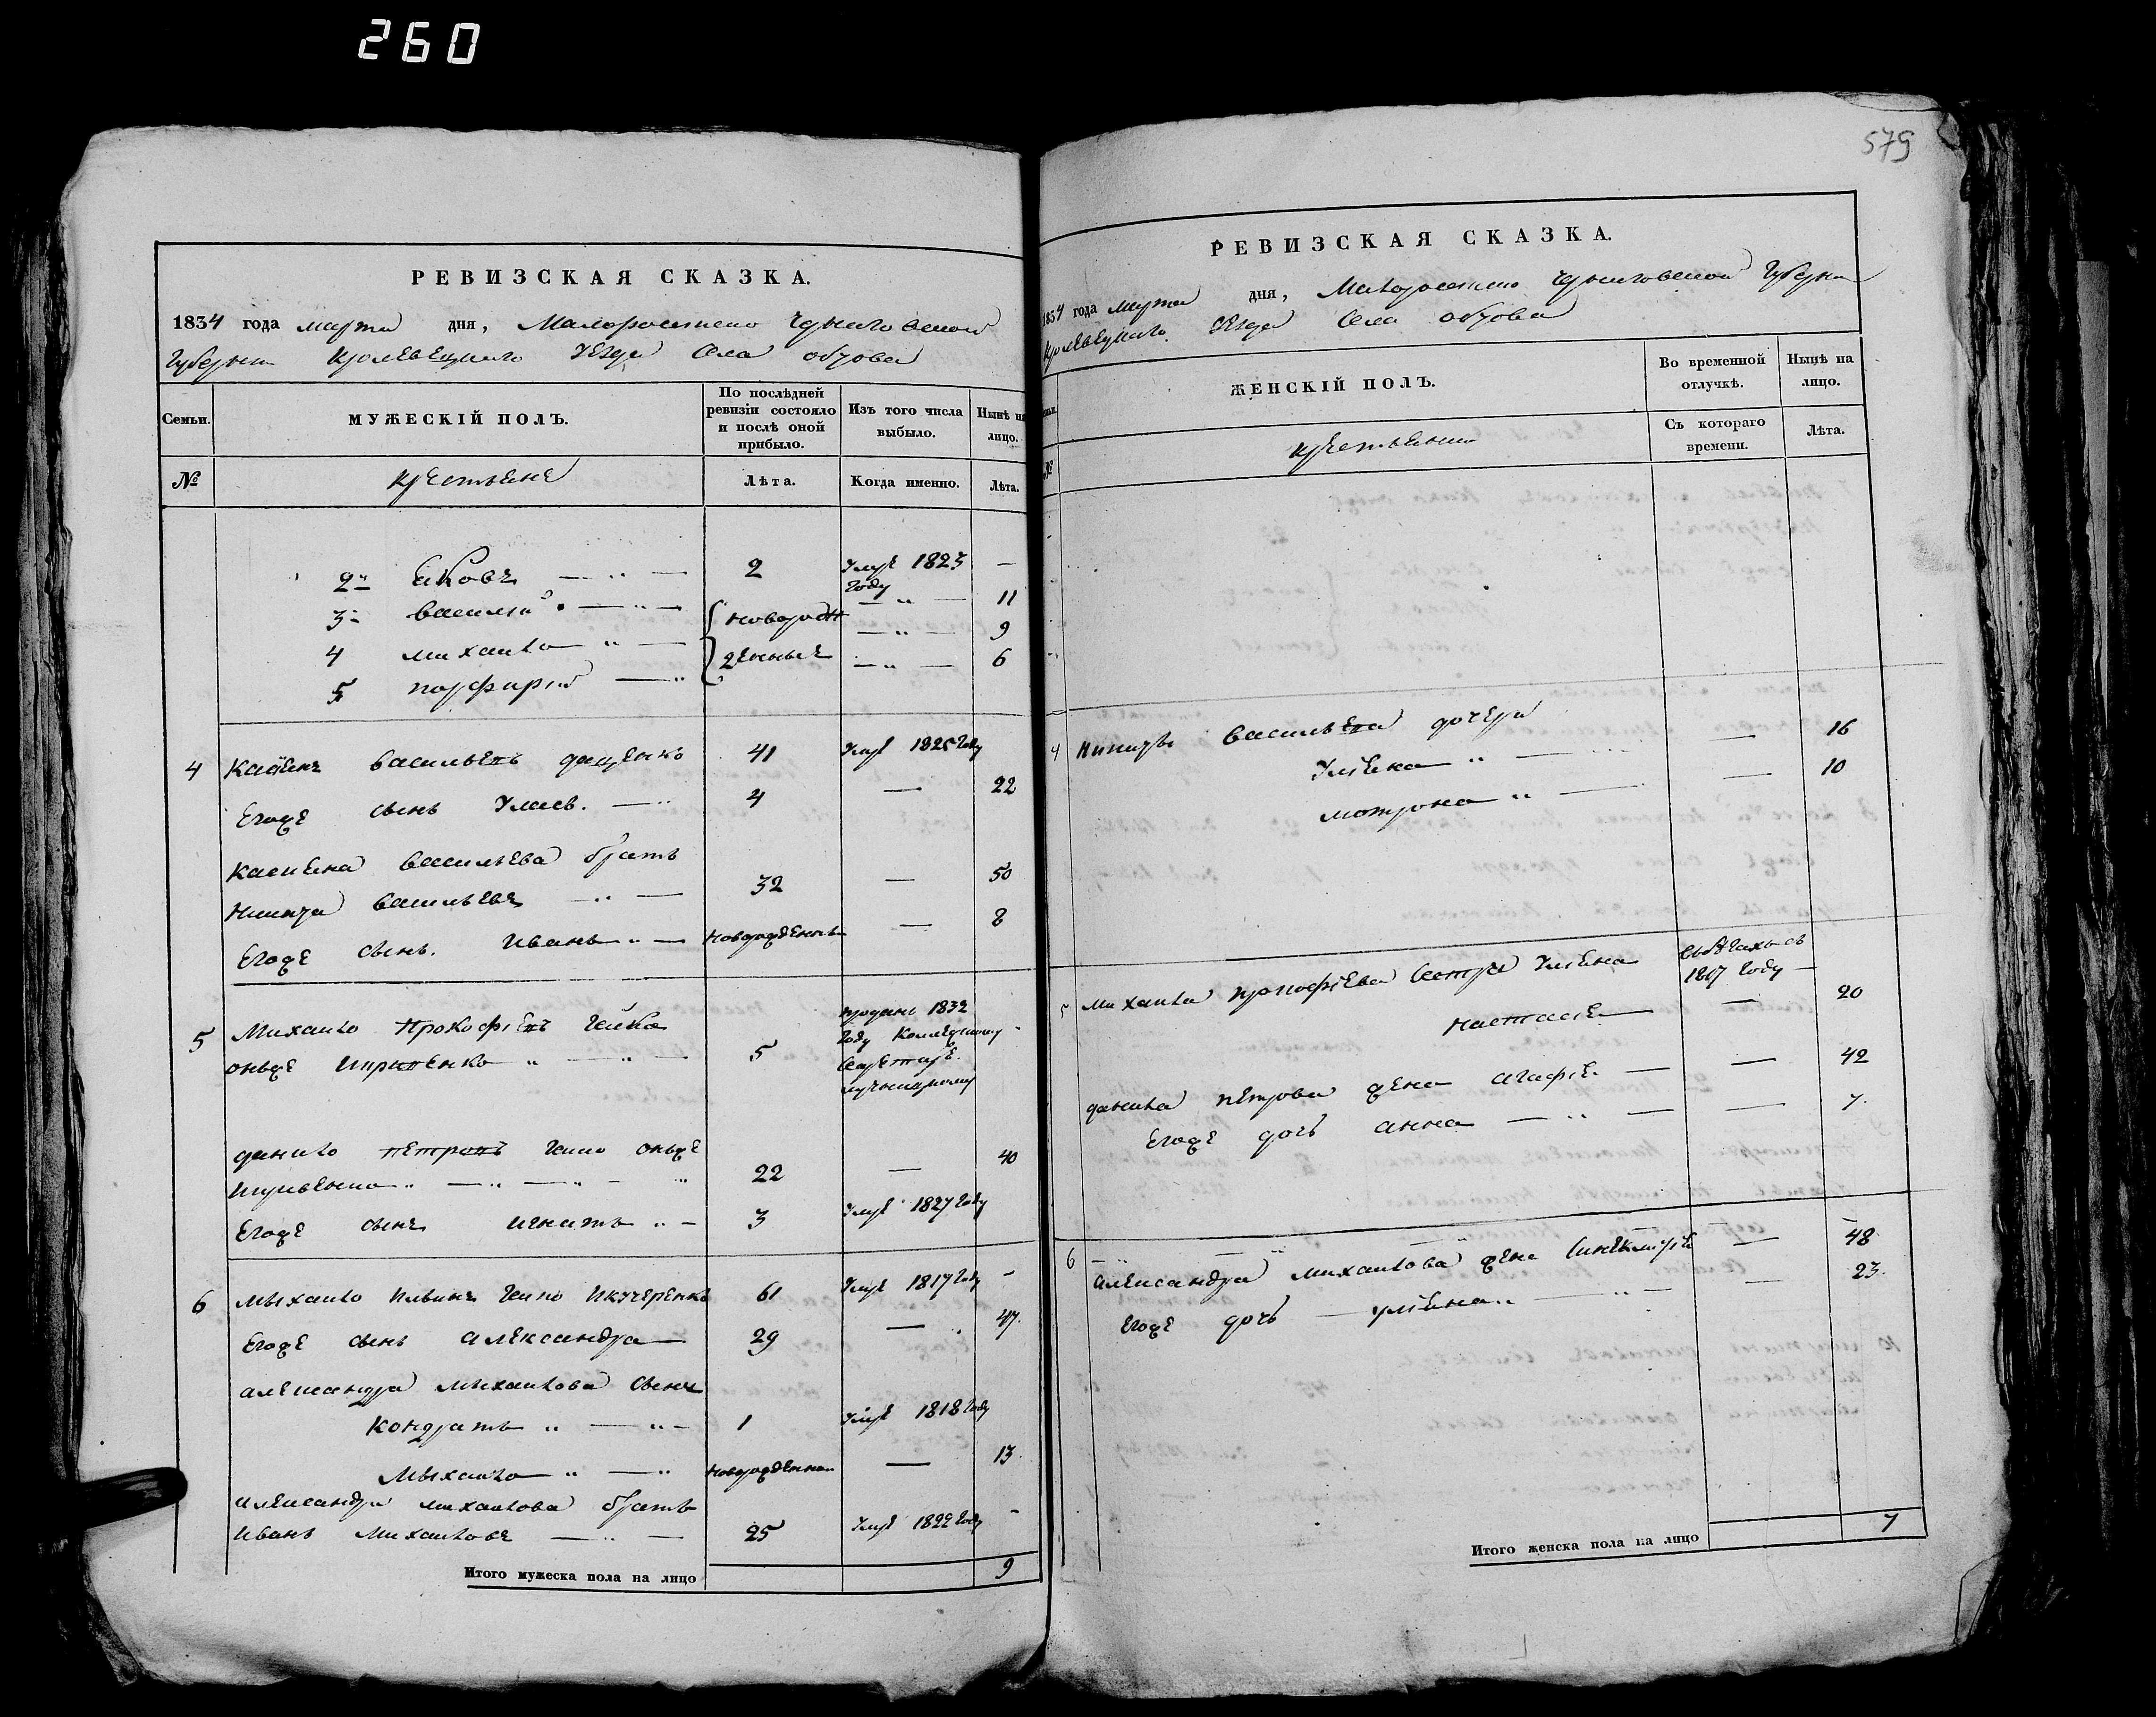 260
579
РЕВИЗСКАЯ СКАЗКА.
1834 года марта дня, Малоросийско Черниговской
Губернии Кролевецкаго уезда Села обтова
Семьи.
МУЖЕСКІЙ ПОЛЪ.
По послѣдней ревизіи состояло и послѣ оной прибыло.
Изъ того числа выбыло.
Нынѣ на лицо.
№
крестьяне
Лѣта.
Когда именно.
Лѣта.
2й Яковъ 2 умре 1823 году —
3й василий 11
4 михайло 9
5 порфирий 6
новорожденные
4 Касиянъ васильевъ даценко 41 умре 1825 году
Егоже сынъ 4 — 22
Касияна васильева братъ
Никита васильевъ 32 — 50
Егоже сынъ. Иванъ новорожденъ — 8
5 Михайло Прокофіевъ
онъже 5 проданъ 1832
году Колежскому
Секретарю
данило петровъ онъже
22 — 40
Егоже сынъ игнатъ 3 умре 1827 году
6 Михайло Ильинъ 61 умре 1817 году -
Егоже сынъ александра 29 — 47.
александра михайлова сынъ
Кондратъ 1 умре 1818 году
Михайло новорожденны — 13
александра михайлова братъ
Иванъ Михайловъ 25 умре 1822 году -
Итого мужеска пола на лицо 9
РЕВИЗСКАЯ СКАЗКА.
1834 года марта дня, Малоросийско Черниговской Губернии
Кролевецкаго уезда Села обтова
ЖЕНСКІЙ ПОЛЪ.
Во временной отлучкѣ.
Нынѣ на лицо.
№
крестьянки
Съ котораго времени.
Лѣта.
4 Никиты васильева дочери
Улияна — 16
мотрона — 10
5 михайла прокофіева сестра Улияна въ бегахъ съ
1817 году —
настасія — 20
данила петрова жена агафія — 42
Егоже дочь анна — 7.
6 александра михайлова жена — 48
Егоже дочь — улияна — 23.
Итого женска пола на лицо 7